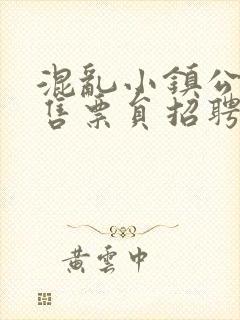 混亂小鎮公
售票員招聘
黃雲中